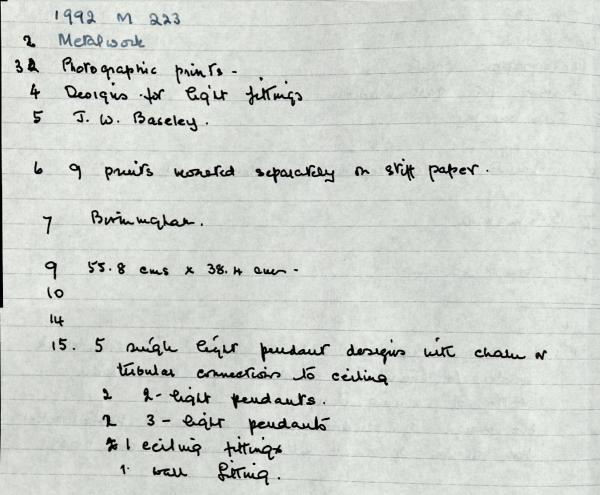 1992 M 223
2 Metalwork
3 2 Photographic prints -
4 Designs for light fittings
5 J. W. Baseley.
6 9 prints mounted separately on stiff paper.
7 Birmingham.
9 55.8 cms x 38.4 cms -
10
14
15. 5 single light pendant designs with chain or
tubular connections to ceiling
2 2-light pendants.
2 3-light pendants
1 ceiling fittings
1 wall fitting.